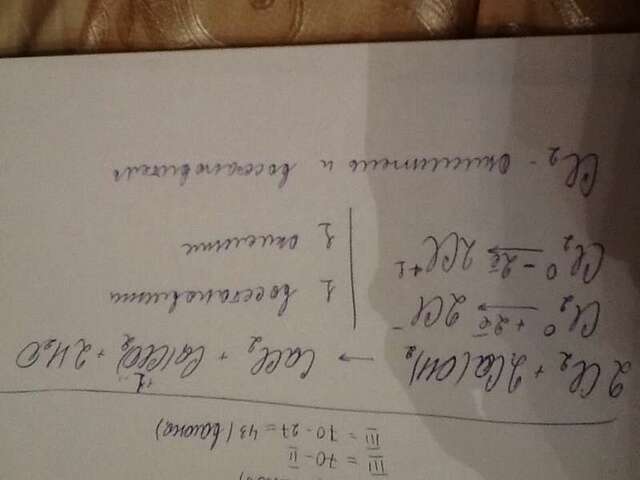 III = 70 - II
III = 70 - 27 = 43 (вагона)
2Cl₂ + 2Ca(OH)₂ → CaCl₂ + Ca(ClO)₂ + 2H₂O
+1
Cl₂⁰ +2ē → 2Cl⁻ | 1 восстановлени
Cl₂⁰ -2ē → 2Cl⁺¹ | 1 окислит
Cl₂ - окислитель и восстановитель